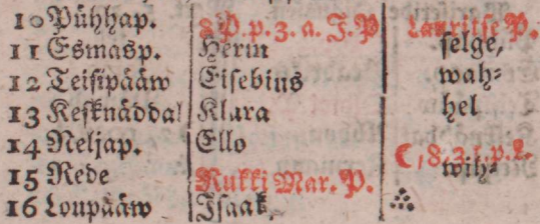 10 Pühhap. 8 P. p. 3. a. J. P Lauritse P.
11 Esmasp. Herm selge,
12 Teisipääw Eisebius wah⸗
13 Kesknäddal Klara hel
14 Neljap. Ello
15 Rede Rukki Mar. P. wih⸗
16 Loupääw Isaak